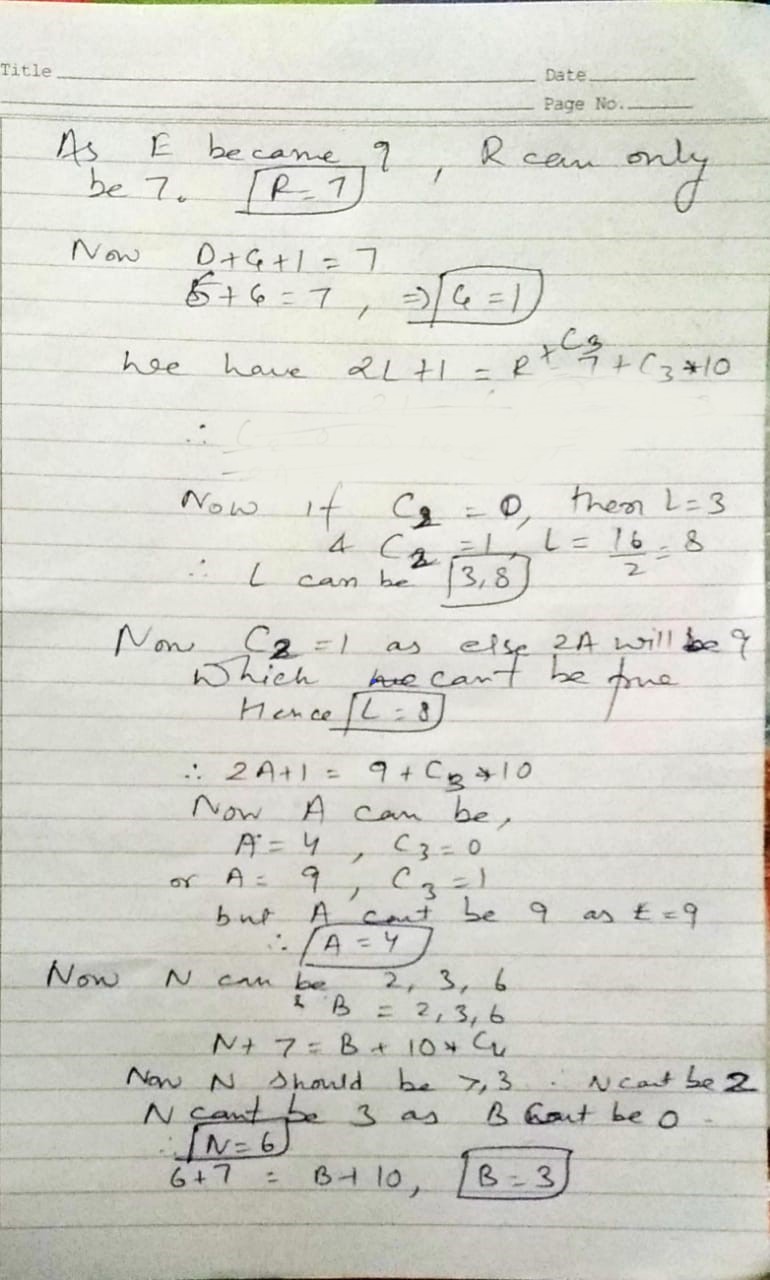 Title
Date
Page No.
As E became 9, R can only
be 7. R = 7
Now D+G+1 = 7
5+G = 7, ⇒ G = 1
we have 2L+1 = R + C3 7 + C3 *10
∴
Now if C2 = 0, then L=3
& C2 = 1, L = 16/2 = 8
∴ L can be 3,8
Now C2 = 1 as else 2A will be 9
which can't be true
Hence L = 8
∴ 2A+1 = 9 + C3 *10
Now A can be,
A = 4, C3 = 0
or A = 9, C3 = 1
but A cant be 9 as E = 9
∴ A = 4
Now N can be 2, 3, 6
& B = 2,3,6
N+ 7 = B + 10* C4
Now N should be >,3 ∴ N cant be 2
N cant be 3 as B cant be 0.
∴ N = 6
6+7 = B+10, B = 3